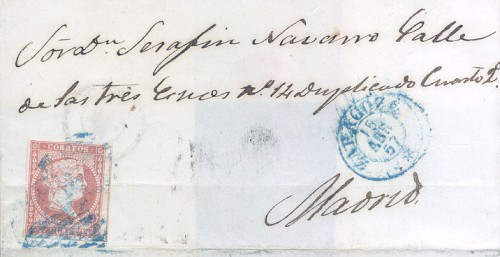 Sôr Dn Serafin Navarro Calle
de las tres Cruces nº 14 Duplicado Cuarto 2º
ZARAGOZA
15
57
CORREOS
Madrid.